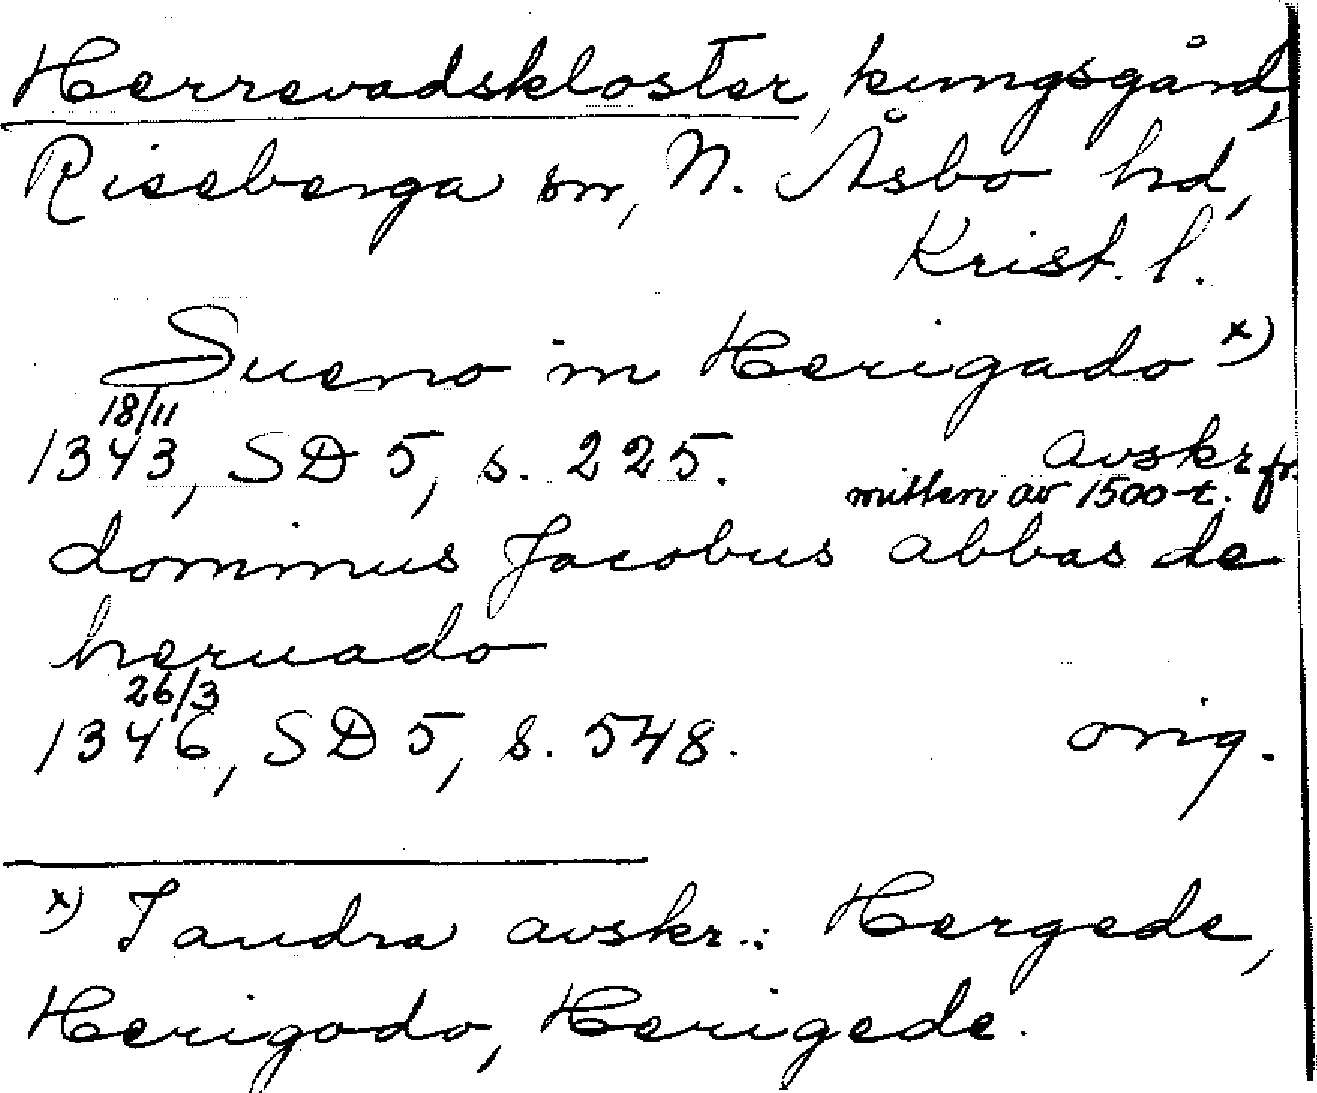 Herrevadskloster, kungsgård,
Riseberga sn, N. Åsbo hd,
Krist. l.
Sueno in Herigado x)
18/11
1343, SD 5, s. 225. avskr. fr.
mitten av 1500-t.
dominus Jacobus abbas de
heruado
26/3
1346, SD 5, s. 548. orig.
x) I andra avskr.: Hergede,
Herigodo, Herigede.